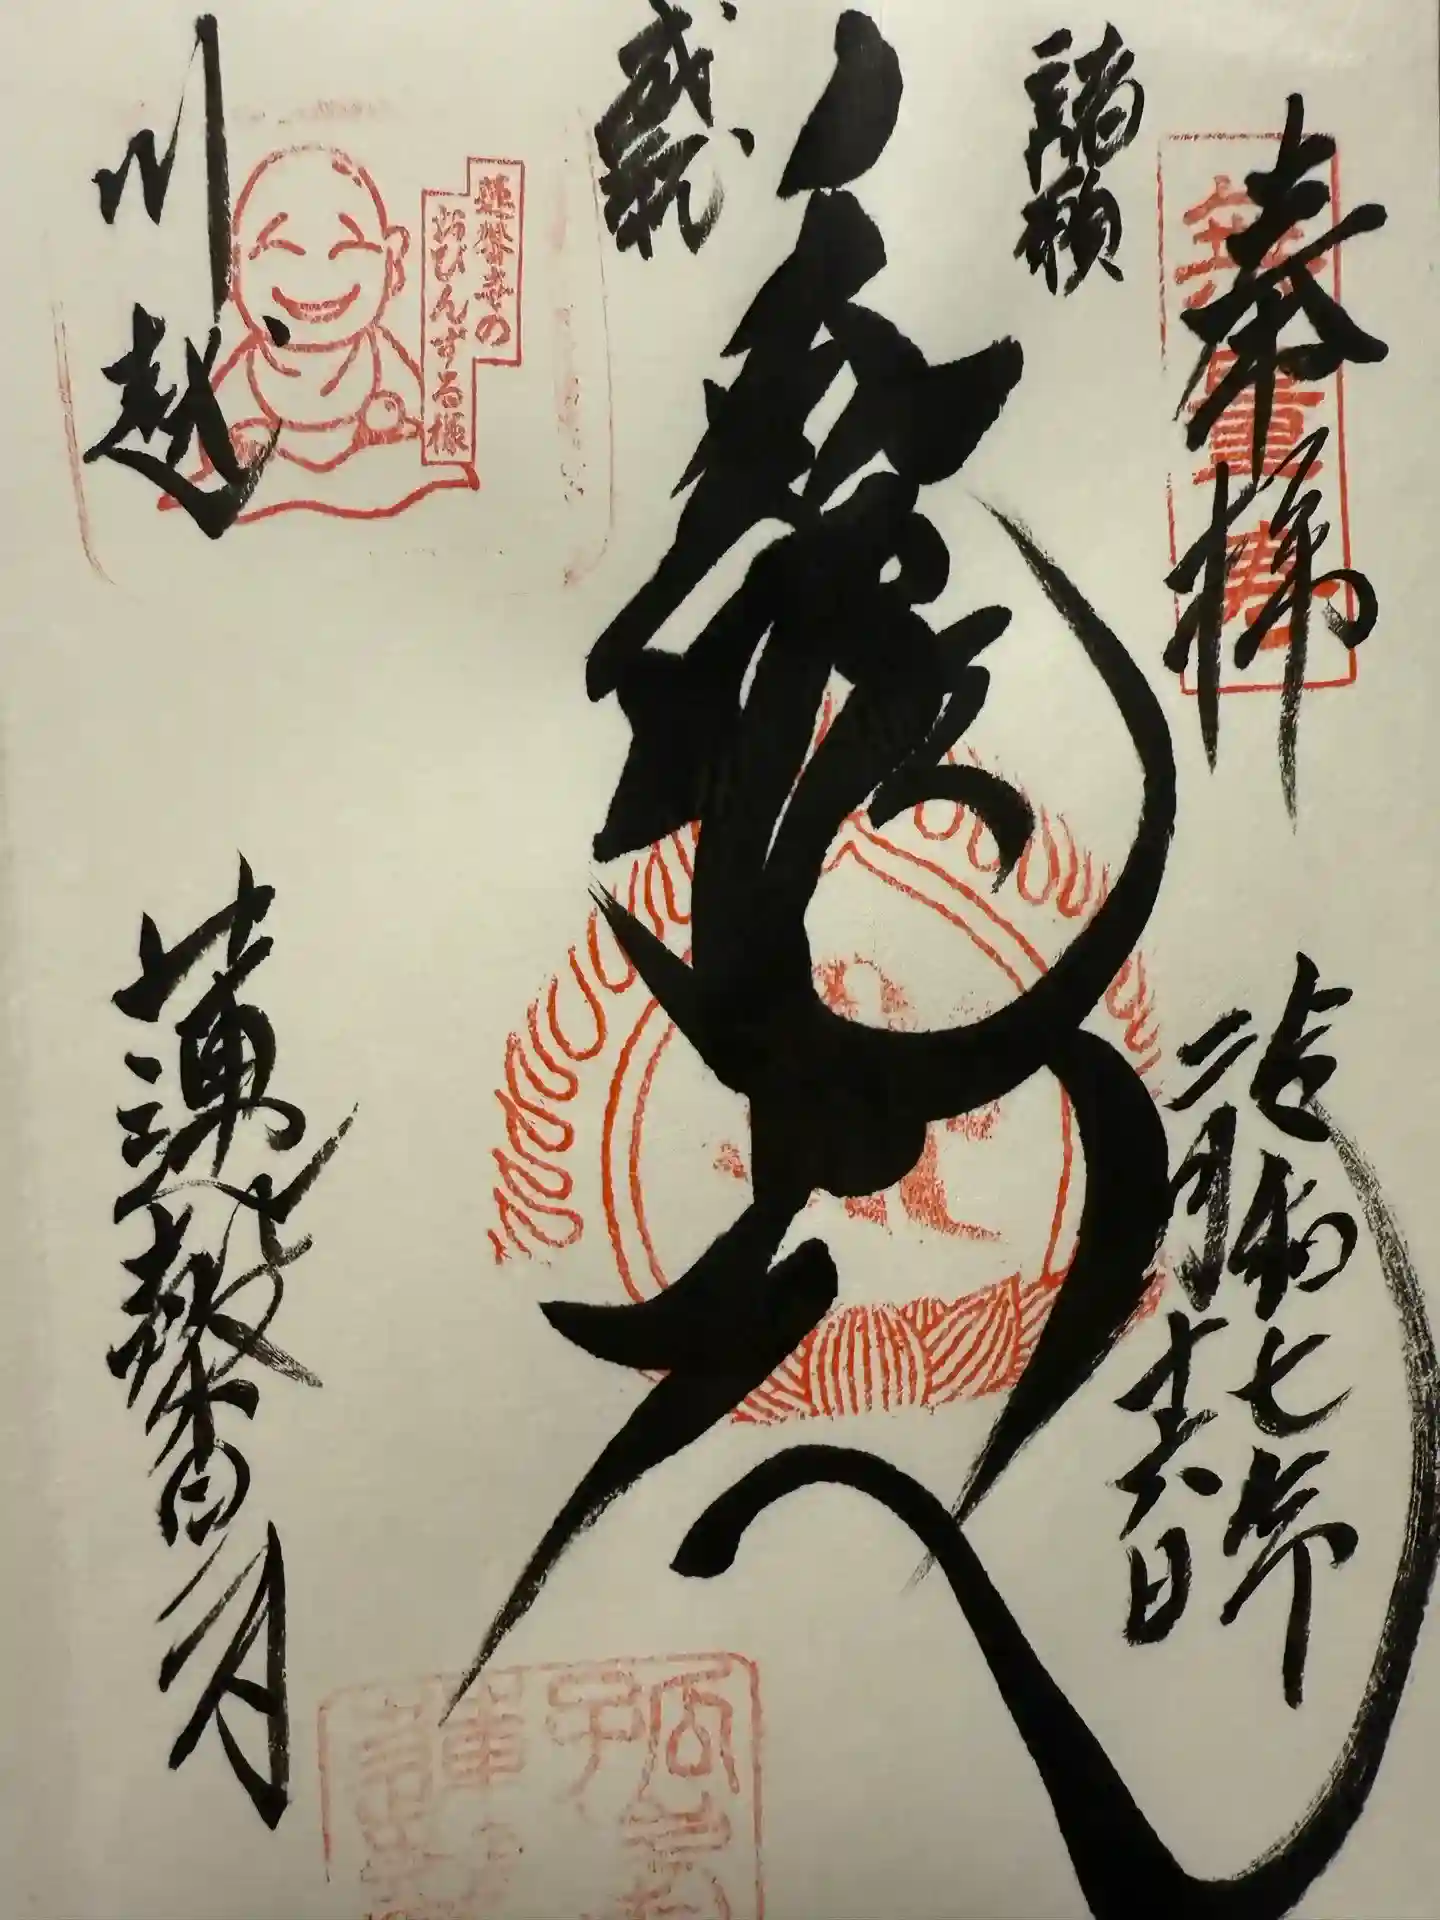 奉拝
無量寿
令和七年
二月十六日
諸願
成就
川越
蓮馨寺の
おびんずる様
蓮馨寺